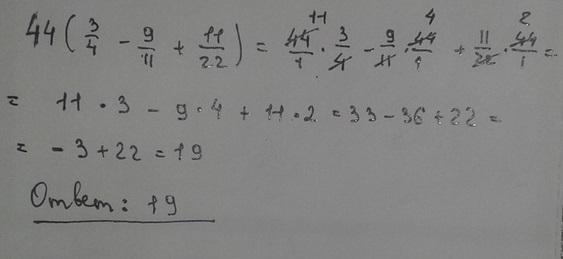 44(3/4 - 9/11 + 11/22) = 44/1 · 3/4 - 9/11 · 44/1 + 11/22 · 44/1 =
= 11 · 3 - 9 · 4 + 11 · 2 = 33 - 36 + 22 =
= - 3 + 22 = 19
Ответ: 19